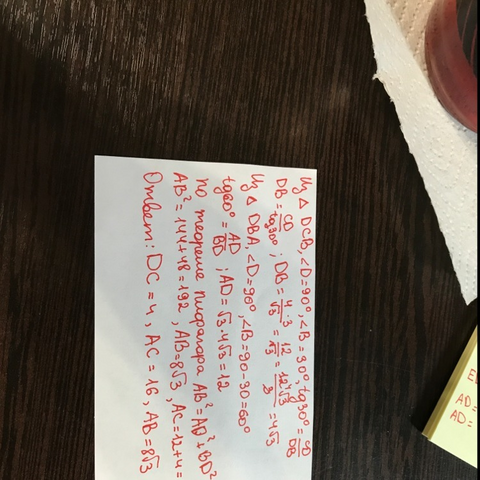 Из △ DCB, <D=90°, <B=30°, tg30° = CD/DB
DB = CD/tg30° ; DB = 4·3/√3 = 12/√3 = 12√3/3 = 4√3
Из △ DBA, <D=90°, <B=90-30=60°
tg60° = AD/BD ; AD=√3·4√3=12
по теореме пифагора AB²=AD²+BD²
AB²=144+48=192, AB=8√3, AC=12+4=
Ответ: DC=4, AC=16, AB=8√3
AD=
AD=